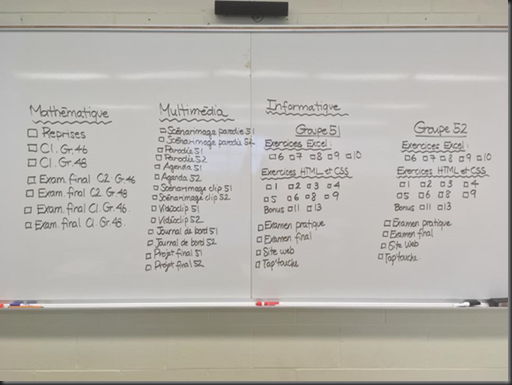 Mathématique
Reprises
C1. Gr. 46
C1. Gr. 48
Exam final C2 Gr. 46
Exam final C2 Gr. 48
Exam final C1. Gr. 46.
Exam final C1. Gr 48.
Multimédia
Scénarimage parodie 51
Scénarimage parodie 52
Parodie 51
Parodie 52
Agenda 51
Agenda 52
Scénarimage clip 51
Scénarimage clip 52
Vidéoclip 51
Vidéoclip 52
Journal de bord 51
Journal de bord 52
Projet final 51
Projet final 52
Informatique
Groupe 51
Exercices Excel:
6 7 8 9 10
Exercices HTML et CSS
1 2 3 4
5 6 8 9
Bonus 11 13
Examen pratique
Examen final
Site web
Tap'touche
Groupe 52
Exercices Excel:
6 7 8 9 10
Exercices HTML et CSS
1 2 3 4
5 6 8 9
Bonus 11 13
Examen pratique
Examen final
Site Web
Tap'touche